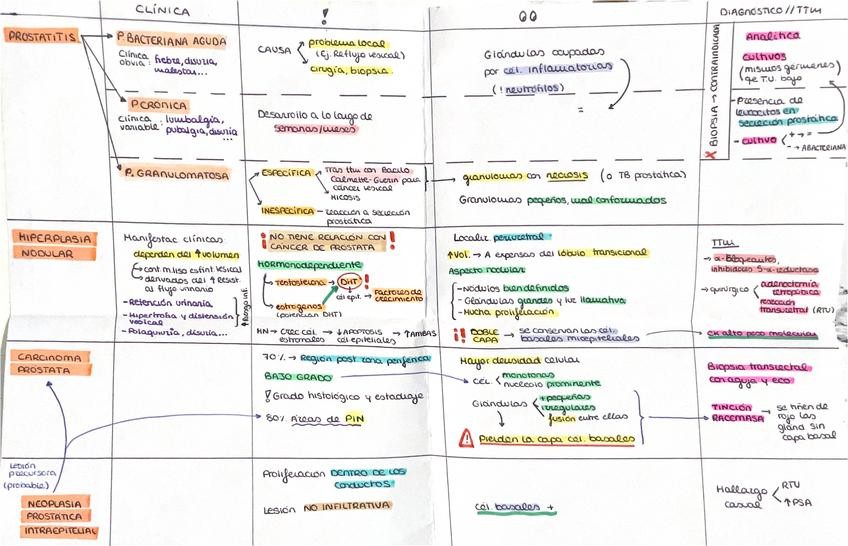 CLÍNICA
!
DIAGNÓSTICO // TTM
PROSTATITIS
P. BACTERIANA AGUDA
Clínica
obvia: fiebre, disuria,
malestar...
CAUSA
problema local
(Ej. Reflujo vesical)
cirugía, biopsia.
Glándulas ocupadas
por cél. inflamatorias
(! neutrófilos)
=
BIOPSIA → CONTRAINDICADA
X
Analítica
cultivos
(mismos gérmenes
de T.U. bajo
P. CRÓNICA
clínica
variable: lumbalgia,
pubalgia, disuria
...
Desarrollo a lo largo de
semanas/meses
- Presencia de
leucocitos en
secreción prostática
- cultivo
+ → =
- → ABACTERIANA
P. GRANULOMATOSA
ESPECÍFICA
Tras ttm con Bacilo
Calmette-Guerin para
cáncer vesical
MICOSIS
INESPECÍFICA - reacción a secreción
prostática
granulomas con necrosis (o TB prostática)
Granulomas pequeños, mal conformados
HIPERPLASIA
NODULAR
Manifestac clínicas
dependen del ↑volumen
cont. m.liso esfint vesical
derivados del ↑ resist.
al flujo urinario
- Retención urinaria
- Hipertrofia y distensión
vesical
- Polaquiuria, disuria...
↑ Riesgo inf.
¡ NO TIENE RELACIÓN CON !
CÁNCER DE PRÓSTATA
HORMONODEPENDIENTE
testosterona → DHT !
cél epit. → Factores de
crecimiento
estrógenos
(potencian DHT)
HN → Crec cél. estromales → ↓ APOPTOSIS cél epiteliales → ↑ AMBAS
Localiz periuretral
↑Vol. → A expensas del lóbulo transicional
Aspecto nodular
- Nódulos bien definidos
- Glándulas grandes y luz llamativa
- Mucha proliferación
!! DOBLE CAPA → se conservan las cél.
basales mioepiteliales
TTM
→ α-Bloqueantes,
inhibidores 5-α-reductasa
→ quirúrgico
adenectomía
retropúbica
resección
transuretral (RTU)
CK alto peso molecular
CARCINOMA
PRÓSTATA
70% → Región post zona periférica
BAJO GRADO
! Grado histológico y estadiaje
80% Áreas de PIN
Mayor densidad celular
CÉL.
monótonas
nucleolo prominente
Glándulas
+ pequeñas
irregulares
fusión entre ellas
Pierden la capa cél. basales
Biopsia transrectal
con aguja y eco
TINCIÓN
RACEMASA
→ se tiñen de
rojo las
gland sin
capa basal
Lesión
precursora
(probable)
NEOPLASIA
PROSTÁTICA
INTRAEPITELIAL
Proliferación DENTRO DE LOS
CONDUCTOS
Lesión NO INFILTRATIVA
cél. basales +
Hallazgo
casual
RTU
↑ PSA